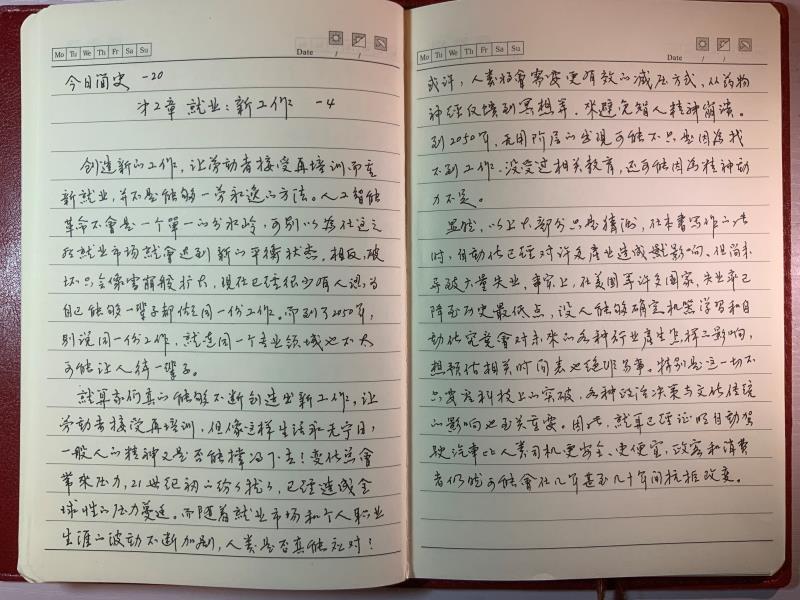 Mo Tu We Th Fr Sa Su
Date / /
今日简史 -20
第2章 就业：新工作 -4
创造新的工作，让劳动者接受再培训而重
新就业，并不是能够一劳永逸的方法。人工智能
革命不會是一个單一的分水岭，可别以為在这之
后就业市场就會达到新的平衡状态。相反，破
坏只会像雪崩般扩大，現在已经很少有人認為
自己能够一輩子都做同一份工作。而到了2050年，
别说同一份工作，就連同一个专业领域也不太
可能让人待一輩子。
就算我们真的能够不断創造出新工作，让
劳动者接受再培训，但像这样生活永无宁日，
一般人的精神又是否能撑得下去！变化总會
带來压力，21世纪初的纷纷扰扰，已经造成全
球性的压力蔓延。而随着就业市场和个人职业
生涯的波动不断加剧，人类是否真能应对？
Mo Tu We Th Fr Sa Su
Date / /
或许，人类将會需要更有效的减压方式，从药物
神经反馈到冥想等，來避免智人精神崩溃。
到2050年，无用阶层的出现可能不只是因為找
不到工作、没受过相关教育，还可能因為精神动
力不足。
显然，以上大部分只是猜测，在本書写作的此
时，自动化已经对许多產业造成影响，但尚未
导致大量失业，事实上，在美國等许多国家，失业率已
降到历史最低点，没人能够確定机器学習和自
动化究竟會对未來的各种行业產生怎样的影响，
想预估相关时间表也绝非易事。特别是这一切不
只要看科技上的突破，各种政治决策与文化传统
的影响也至关重要。因此，就算已经证明自动驾
驶汽車比人类司机更安全、更便宜，政客和消費
者仍然可能會在几年甚至几十年间抗拒改变。